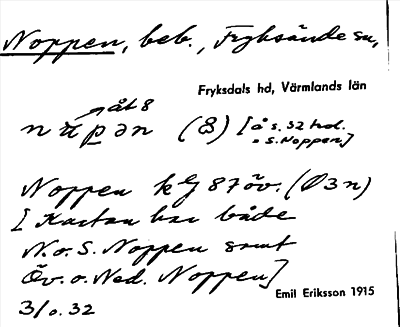 Noppen, beb., Fryksände sn,
Fryksdals hd, Värmlands län
åt 8
[å s. 32 hd.
o S. Noppen]
Noppen kg 87 öv. (Ø 3 n)
[Kartan har både
N. o. S. Noppen samt
Öv. o. Ned. Noppen]
3/o. 32
Emil Eriksson 1915